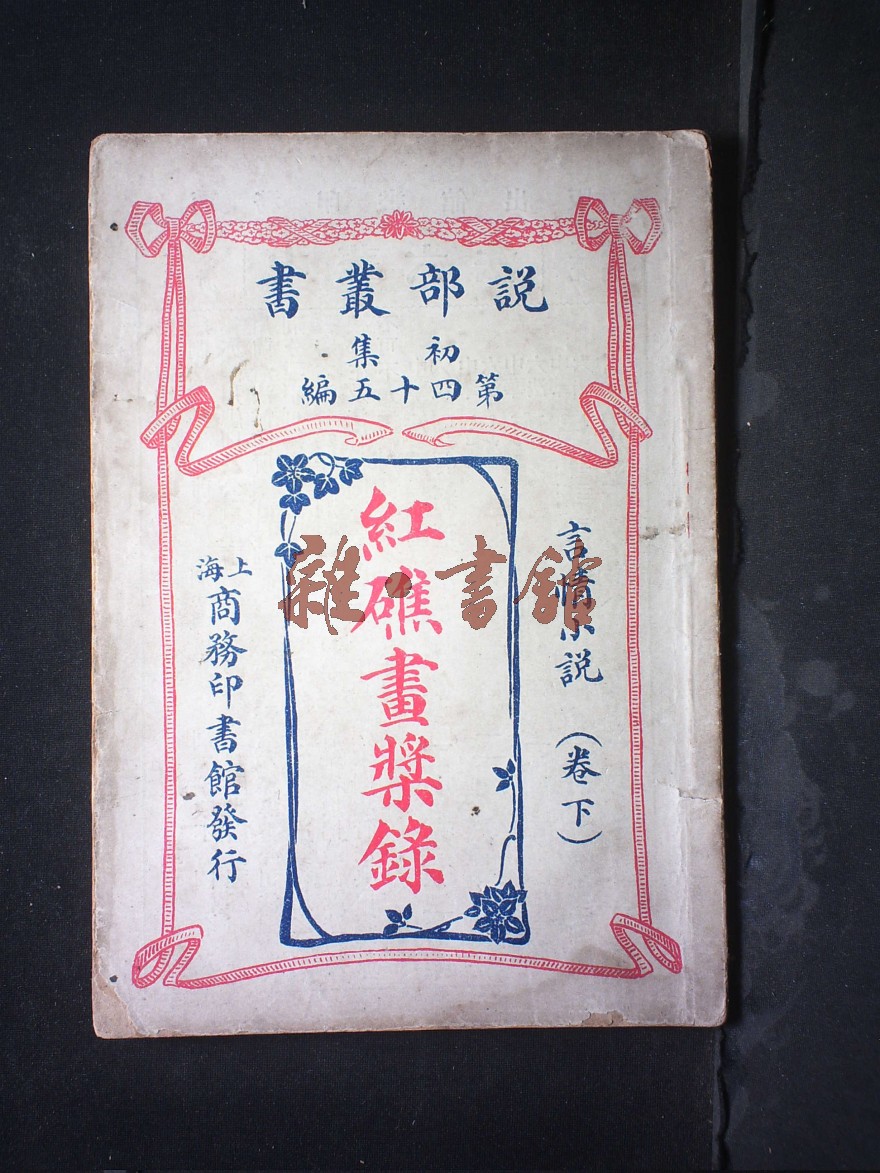 説部叢書
初集
第四十五編
言情小説（卷下）
紅礁畫槳錄
上海
商務印書館發行
雜·書館